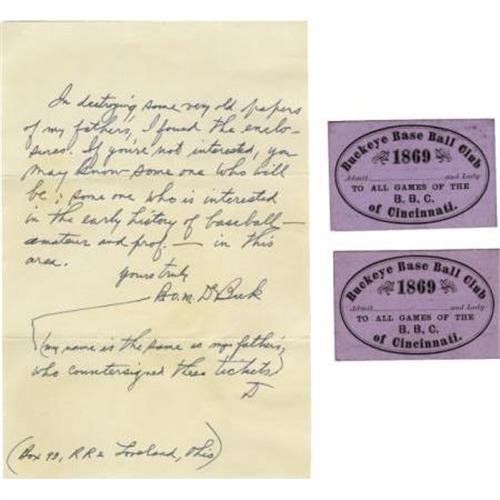 In destroying some very old papers
of my fathers, I found the enclo-
sures. If you're not interested, you
may know some one who will
be; some one who is interested
in the early history of baseball —
amateur and prof. — in this
area.
Yours truly
(my name is the same as my father's,
who countersigned these tickets)
D
(Box 90, RR 2 Loveland, Ohio)
Buckeye Base Ball Club
1869
Admit and Lady
TO ALL GAMES OF THE
B. B. C.
of Cincinnati.
Buckeye Base Ball Club
1869
Admit and Lady
TO ALL GAMES OF THE
B. B. C.
of Cincinnati.